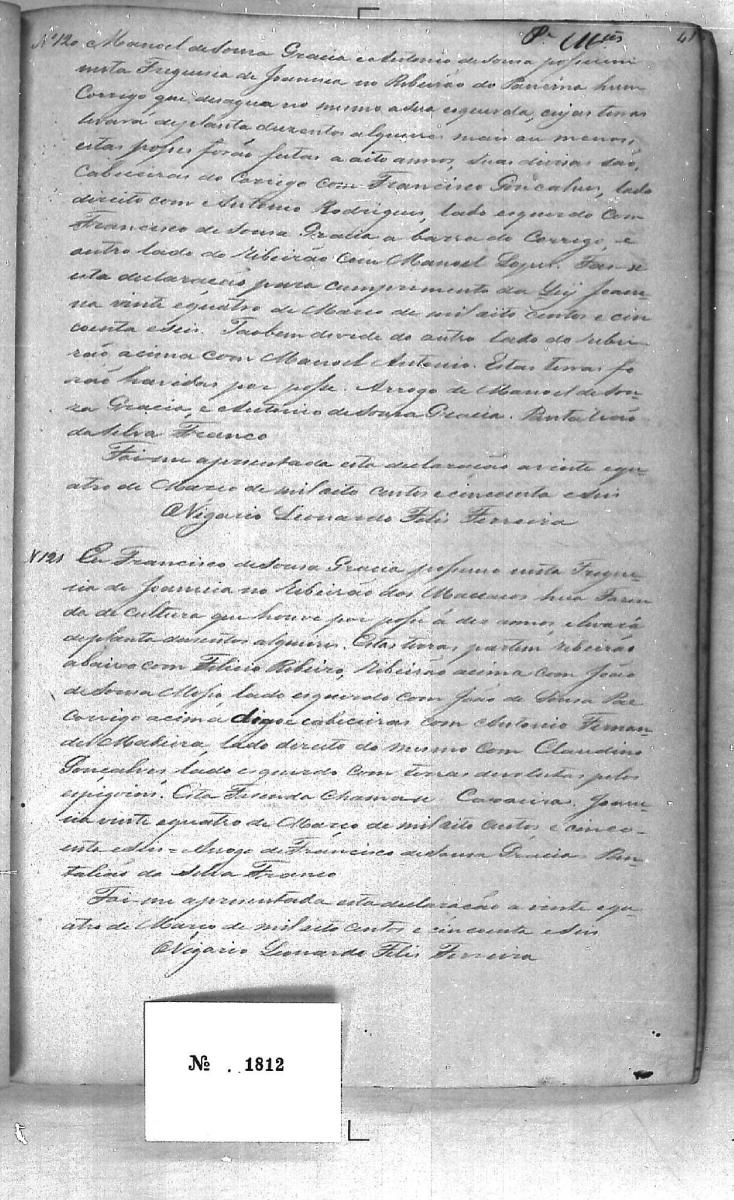 41
Nº 120 Manoel de Sousa Gracia e Antonio de Sousa possuem
nesta Freguesia de Joanesia no Ribeirão do hum
Corrego que desagua no mesmo a sua esquerda, cujas terras
levará de planta duzentos alqueires mais ou menos,
estas posses forão feitas a oito annos, suas divisas são,
Cabeceiras do Corrego com Francisco Gonçalves, lado
direito com Antonio Rodrigues, lado esquerdo com
Francisco de Sousa Gracia a barra do Corrego, e
outro lado do Ribeirão com Manoel Lopes. Faz-se
esta declaração para cumprimento da Leij Joane-
sia vinte e quatro de Março de mil oito centos e cin
coenta e seis. Taobem devide do outro lado do Ribei-
rão acima com Manoel Antonio. Estas terras fo
rão havidas por posse. Arrogo de Manoel de Sou-
za Gracia, e Antonio de Sousa Gracia.
da Silva Franco
Foi-me apresentada esta declaração a vinte e qu-
atro de Março de mil oito centos e cincoenta e seis
O Vigario Leonardo Felis Ferreira
Nº 121 Eu Francisco de Sousa Gracia possuo nesta Fregue-
sia de Joanesia no Ribeirão dos Macacos hua Fazen
da de cultura que houve por posse á dez annos e levará
de planta dusentos alqueires. Estas terras partem, ribeirão
abaixo com Felicio Ribeiro, Ribeirão acima com João
de Sousa lado esquerdo com João de Sousa
Corrego acima digo e cabeceiras com Antonio Fernan
des Madeira, lado direito do mesmo com Claudino
Gonçalves lado esquerdo com terras devolutas pelos
espigoens. Esta Fasenda chama-se Joane-
sia vinte e quatro de Março de mil oito centos e cinco-
enta e seis = Arrogo de Francisco de Sousa Gracia
da Silva Franco
Foi-me apresentada esta declaração a vinte e qu-
atro de Março de mil oito centos e cincoenta e seis
O Vigario Leonardo Felis Ferreira
Nº 1812